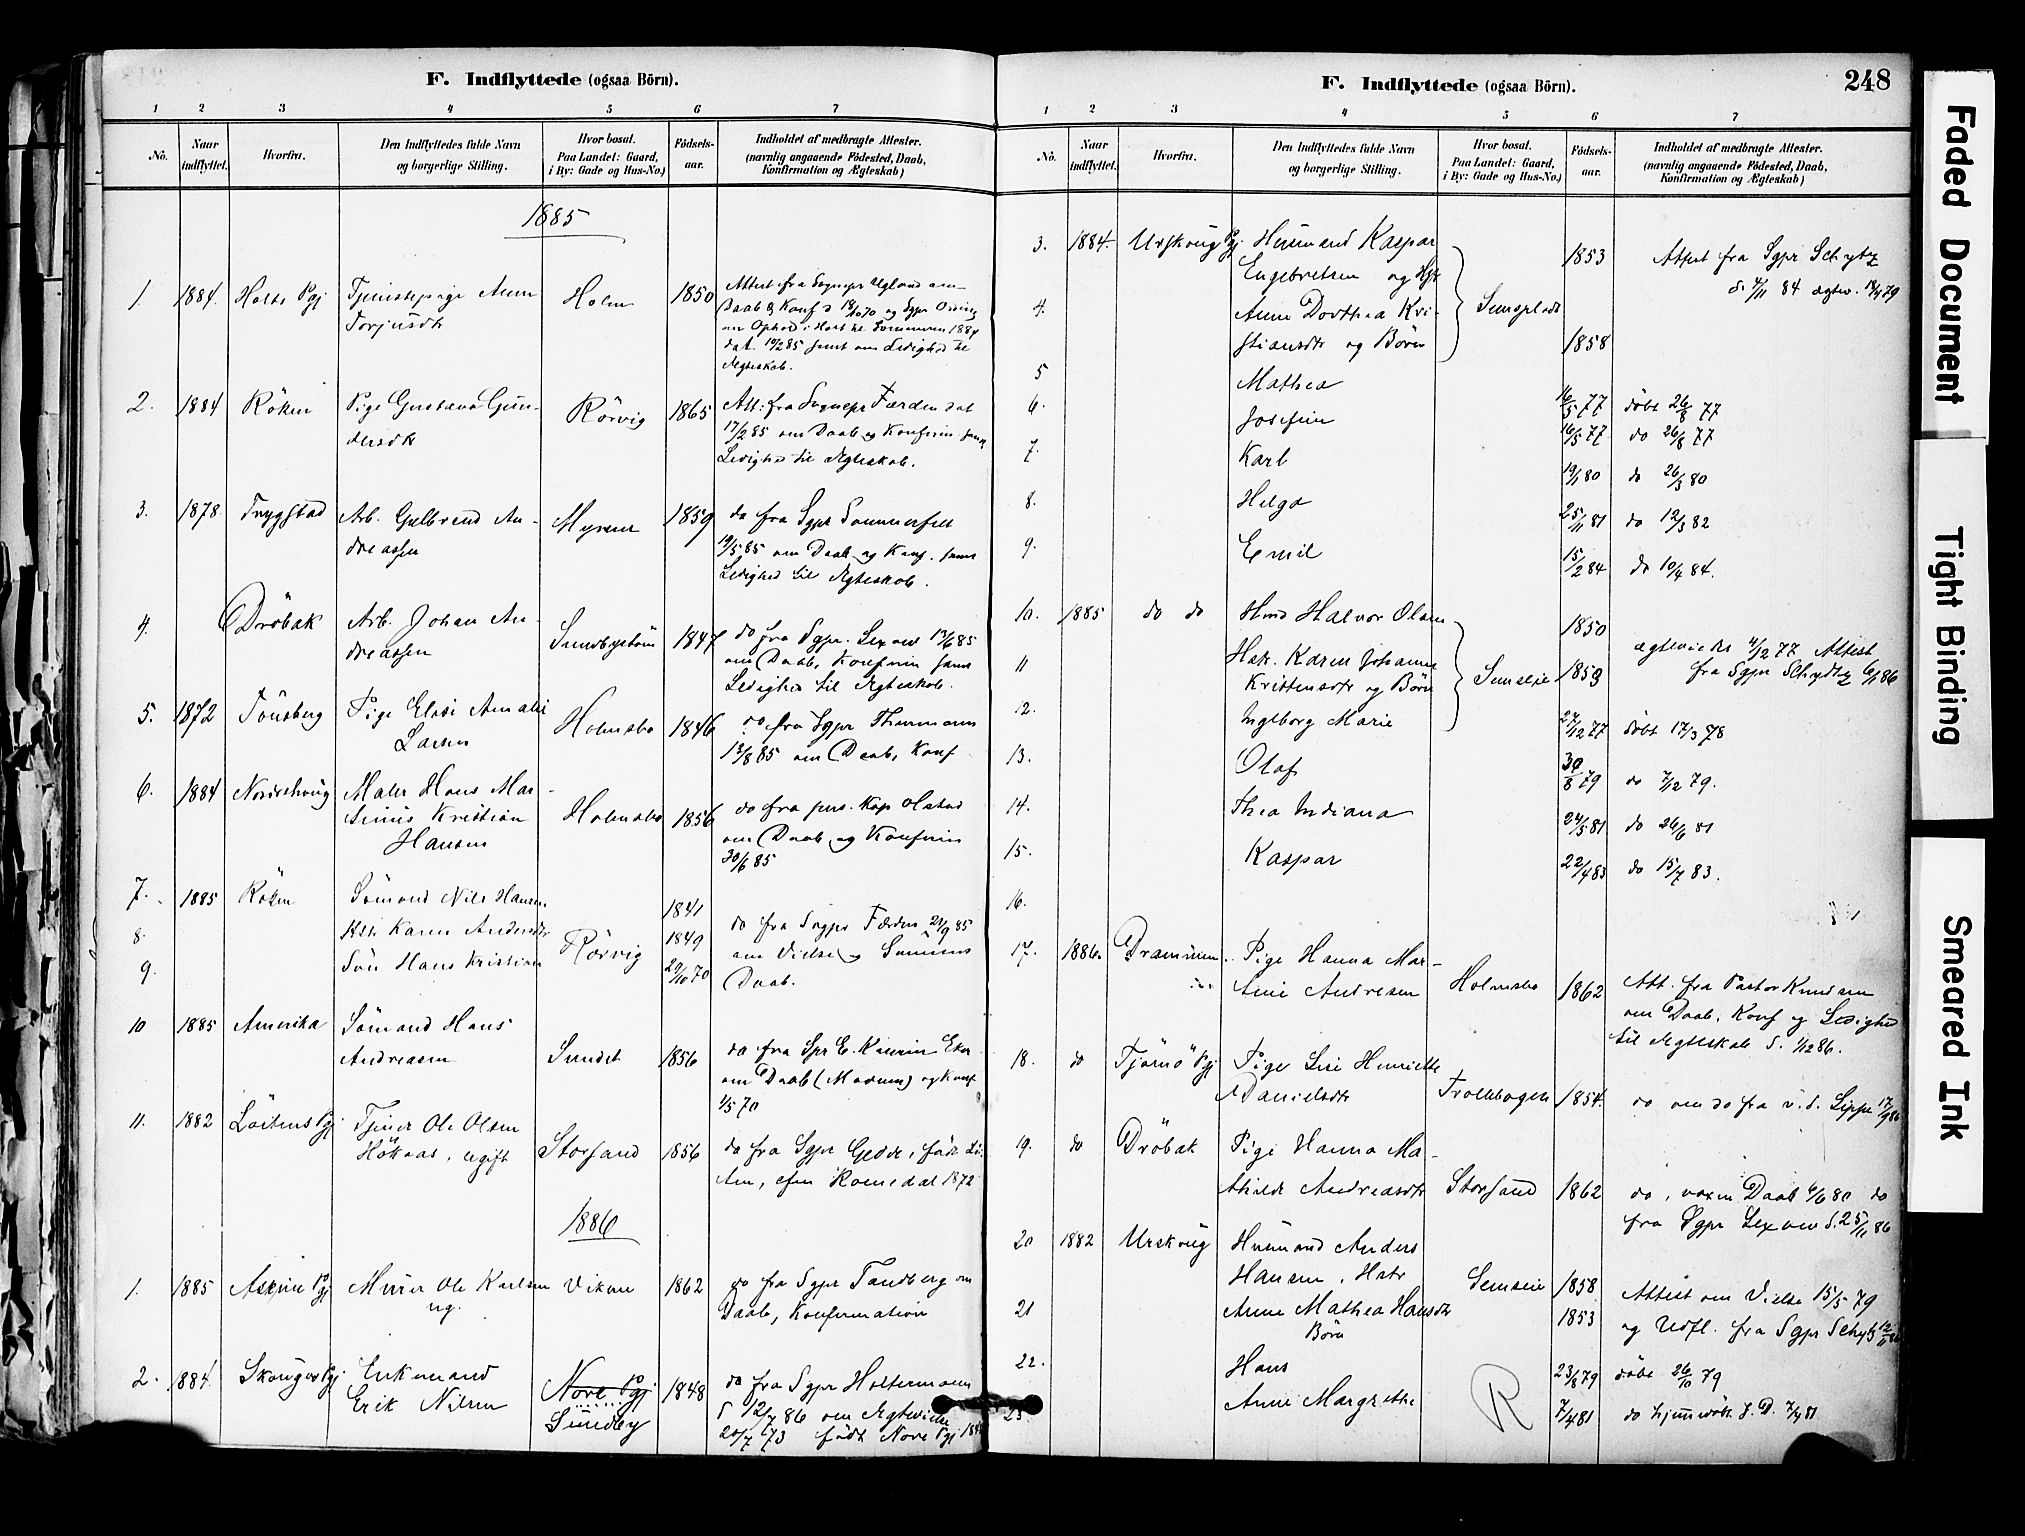 F. Indflyttede (ogsaa Börn).
1 2 3 4 5 6 7
No.
Naar indflyttet.
Hvorfra.
Den Indflyttedes fulde Navn og borgerlige Stilling.
Hvor bosat. Paa Landet: Gaard, i By: Gade og Hus-No.)
Födsels-aar.
Indholdet af medbragte Attester. (navnlig angaaende Födested, Daab, Konfirmation og Ægteskab)
1885
1. 1884. Holts Pgj Tjenestepige Anne Holm 1850 Attest fra Sognepr Ugland om
Torjusdtr Daab & Konf
dat. 10/2 85 samt om Ledighed til
Ægteskab.
2. 1884 Röken Pige Gustava Gun- Rörvig 1865 Att: fra Sognepr Færden dat
dersdtr 17/2 85 om Daab og Konfirm samt
Ledighed til Ægteskab.
3. 1878. Trygstad Arb. Gulbrand An- Myrene 1859 do fra Sgpr Sommerfelt
dreassen 19/5 85 om Daab og Konf. samt
Ledighed til Ægteskab.
4. Dröbak Arb. Johan An- 1847 do fra Sgpr. Lexow 13/6 85
dreassen om Daab, Konfirm samt
Ledighed til Ægteskab.
5. 1872 Tönsberg Pige Elise Amalie Holmsbo 1846 do fra Sgpr Thurmann
Larsen 13/8 85 om Daab, Konf
6. 1884 Maler Hans Mar- Holmsbo 1856 do fra pers. Kap Olstad
tinius Kristian om Daab og Konfirm
Hansen 30/6 85
7. 1885 Röken Sömand Nils Hansen 1841 do fra Sogpr Færden 21/9 85
8. Hstr Karen Andersdtr Rörvig 1849 om Vielse og Sönnens
9. Sön Hans Kristian 29/10 70 Daab.
10 1885 Amerika Sömand Hans
Andreasen Sundet 1856 do fra Spr E. Kaurin Eker
om Daab (Modum) og Konf
1/5 70
11. 1882 Löitens Pgj Tjener Ole Olsen
Höknas, ugift Storsand 1856 do fra Sgpr Gedde, födt Lö-
ten, Romedal 1872
1886
1. 1885 Askim Pgj Murer Ole Karlsen Viken 1862 do fra Sgpr Tandberg om
ug. Daab, Konfirmation
2. 1884. Skouger Pgj Enkemand Nore Pgj 1848 do fra Sgpr Holtermann
Erik Nilsen Sundby d 12/7 86 om Ægtevielse
20/7 73 födt Nore Pgj
F. Indflyttede (ogsaa Börn). 248
1 2 3 4 5 6 7
No.
Naar indflyttet.
Hvorfra.
Den Indflyttedes fulde Navn og borgerlige Stilling.
Hvor bosat. Paa Landet: Gaard, i By: Gade og Hus-No.)
Födsels-aar.
Indholdet af medbragte Attester. (navnlig angaaende Födested, Daab, Konfirmation og Ægteskab)
3. 1884. Urskoug Pgj. Husmand Kaspar 1853 Attest fra Sgpr Schytz
Engebretsen og Hstr d. 4/11 84
4. Anne Dorthea Kri-
stiansdtr og Börn 1858
5 Mathea 16/5 77 döbt 26/8 77
6. Josefine 16/5 77 do 26/8 77
7. Karl 19/1 80 do 26/3 80
8. Helga 25/11 81 do 12/3 82
9. Emil 15/2 84 do 10/4 84.
10. 1885 do do Hmd Halvor Olsen 1850
11 Hstr. Karen Johanne Semseie 1859 ægteviede 4/12 77 Attest
Kristensdtr og Börn fra Sgpr Schydtz 6/1 86
12. Ingeborg Marie 27/12 77 döbt 17/3 78
13. Olaf 30/8 79 do 7/12 79.
14. Thea Indiana 24/5 81 do 26/6 81
15. Kaspar 22/4 83 do 15/7 83.
16.
17. 1886. Drammen Pige Hanna Mar-
tine Andresen Holmsbo 1862 Att. fra Pastor Knudsen
om Daab, Konf og Ledighed
til Ægteskab d. 1/12 86.
18. do Tjömö Pgj Pige Lise Henriette
Danielsdtr Trollbogen 1854. do om do fra v. d. Lippe
19. do Dröbak Pige Hanna Ma-
thilde Andreasdtr Storsand 1862 do, voxen Daab 6/6 80 do
fra Sgpr Lexow d. 25/11 86
20 1882 Urskoug Husmand Anders
Hansen, Hstr Semseie 1858 Attest om Vielse 15/5 79
21 Anne Mathea Hansdtr 1853 og Udfl. fra Sgpr Schytz
Börn
22. Hans 23/8 79 döbt 26/10 79
23 Anne Margrethe R 7/4 81 do hjemmedöbt
Faded Document
Tight Binding
Smeared Ink